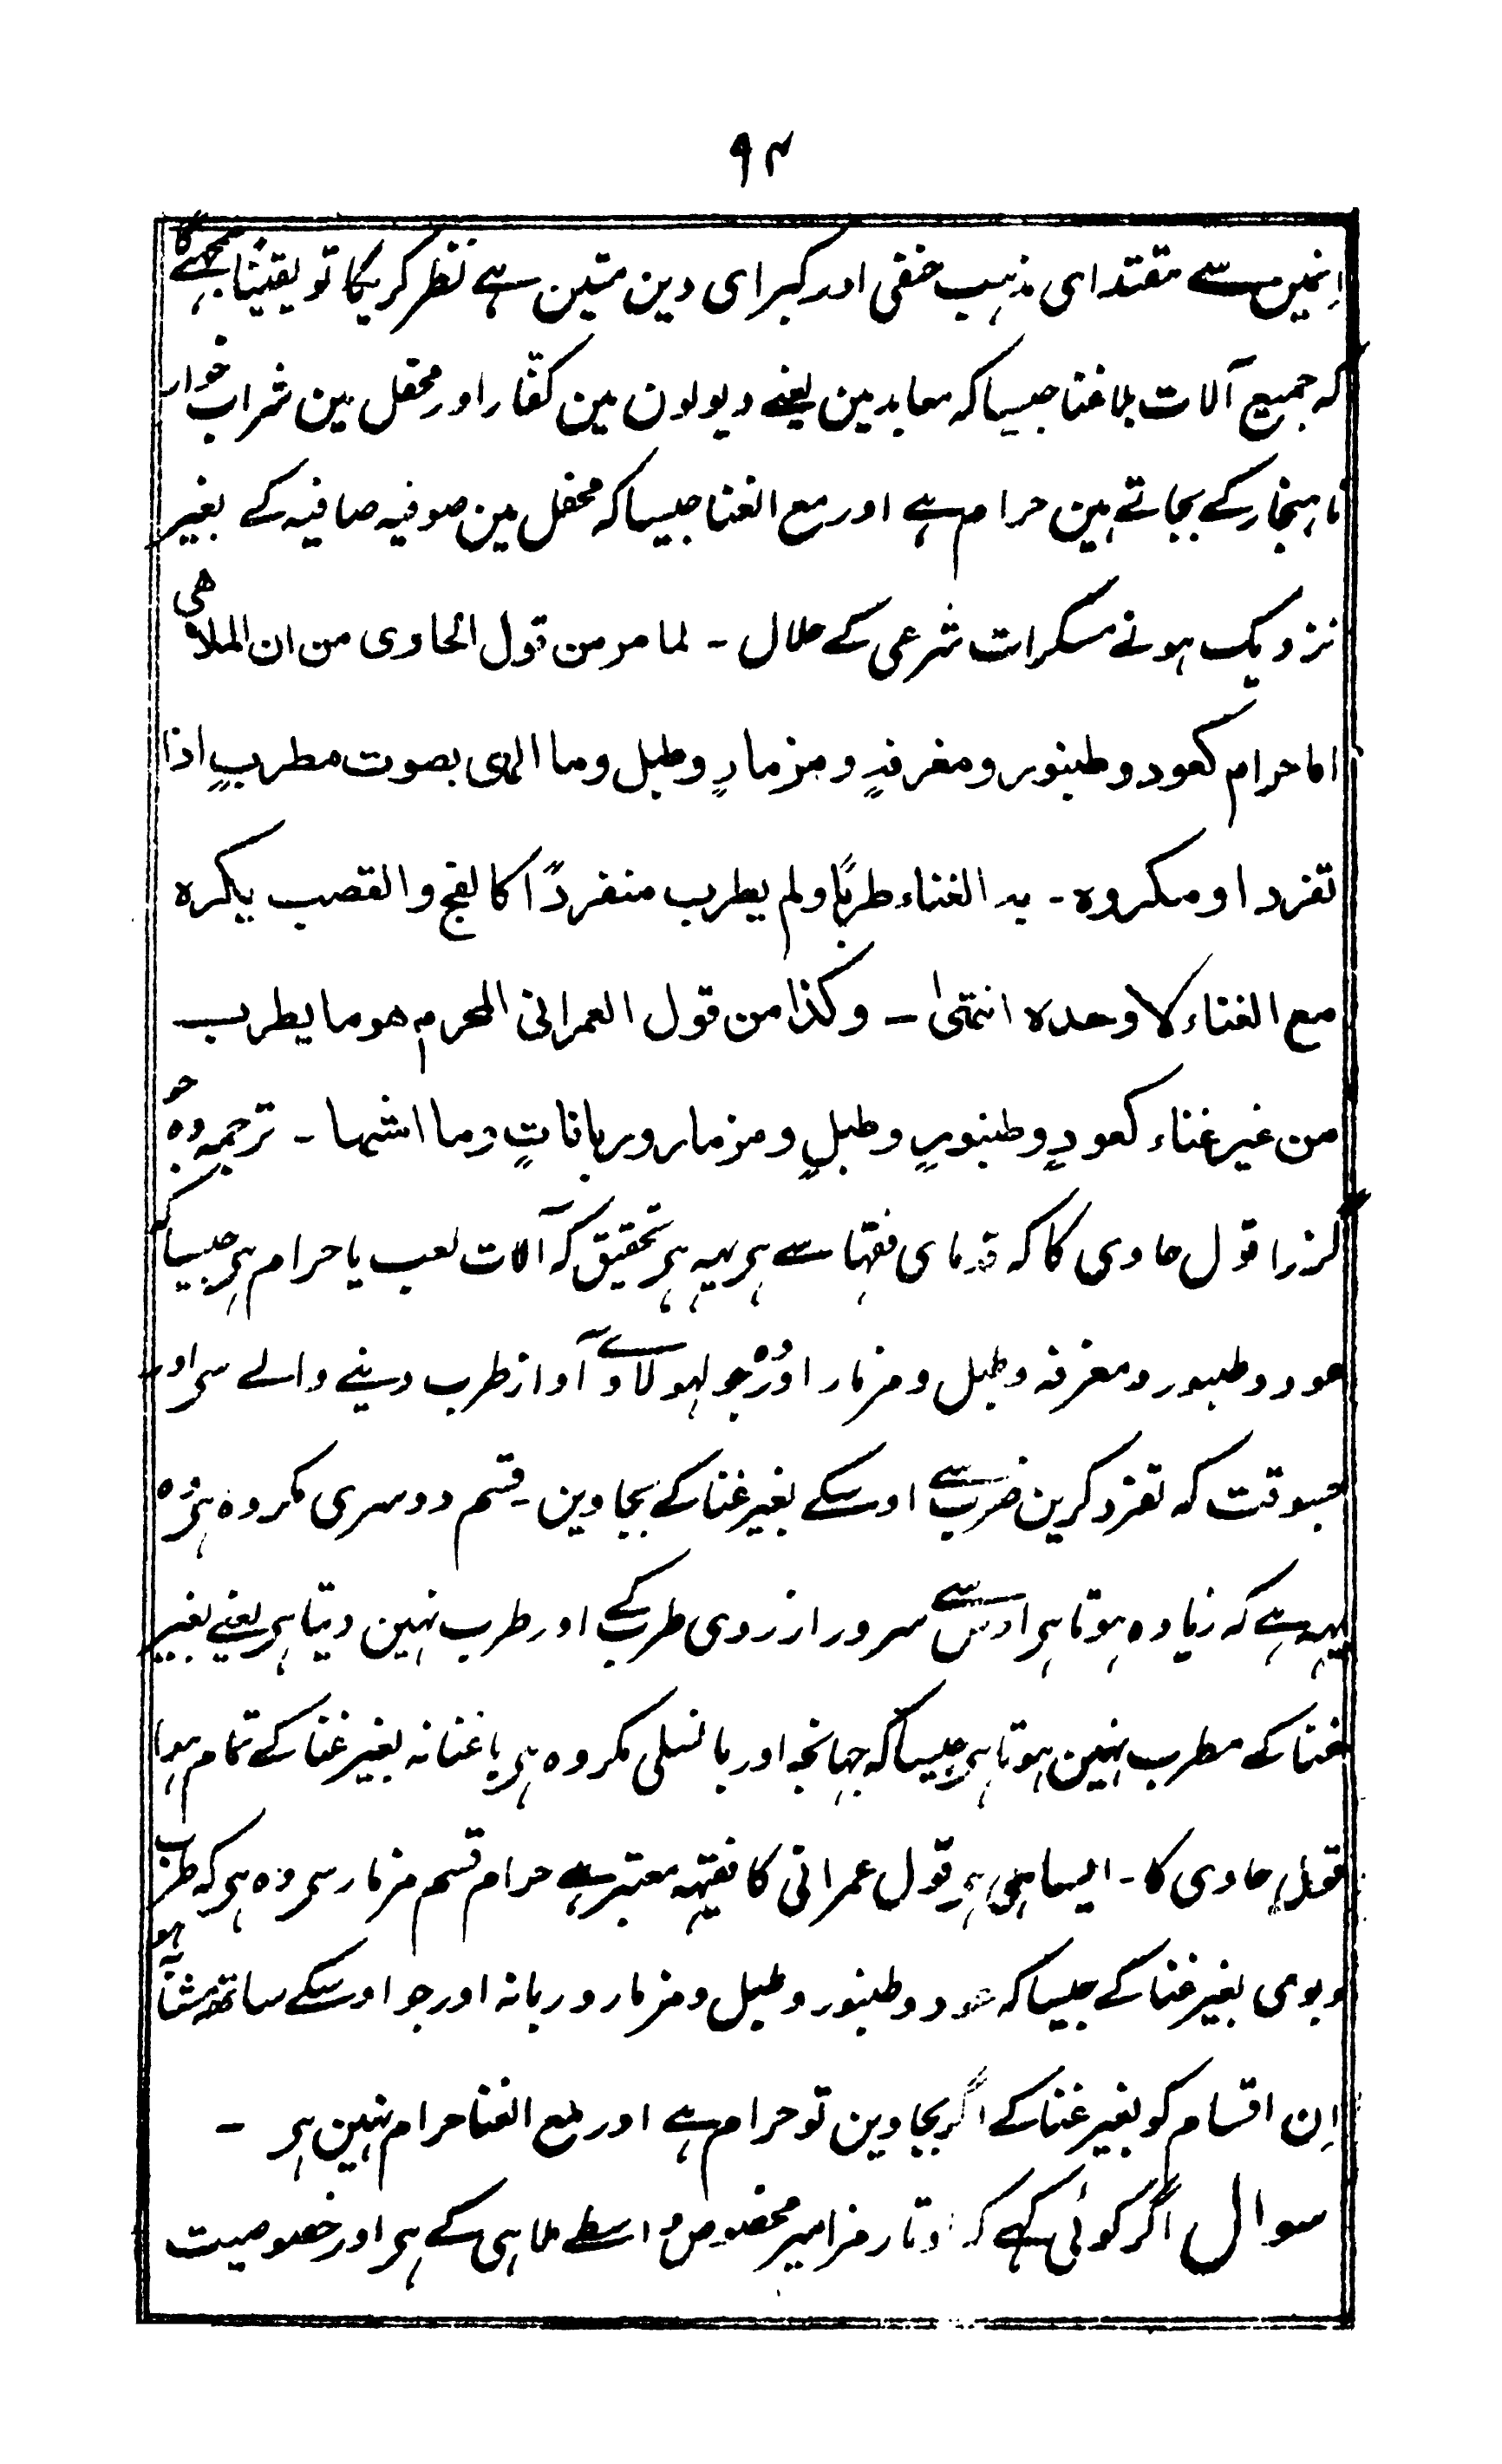 ۹۴
انمیں سے مقتدای مذہب حنفی اور کبرای دین متین ہے نظر کریگا تو یقیناً سمجھے گا
کہ جمیع آلات بلا غنا جیسا کہ معابد مین یعنے دیولون مین کفّار اور محفل مین شراب خوار
ناہنجار کے بجاتے ہین حرام ہے اور مع الغنا جیسا کہ محفل مین صوفیہ صافیہ کے بغیر
نزدیک ہونے مسکرات شرعی کے حلال ۔ لما مر من قول الحاوی من ان الملاهی
اما حرام کعود و طنبور و معزفةٍ و مزمارٍ و طبل وما الهی بصوت مطربٍ اذا
تفرد او مکروه ۔ ید الغناء طربًا ولم یطرب منفردًا کالفج والقصب یکره
مع الغناء لا وحده انتهىٰ ۔ وکذا من قول العمرانی المحرم هو ما یطرب
من غیر غناء کعودٍ و طنبورٍ و طبلٍ و مزمار و ربانات وما اشبهها ۔ ترجمہ وہ جو
گزرا قول حاوی کا کہ قدمای فقہا سے ہی یہہ ہی تحقیق کہ آلات لعب یا حرام ہی جیسا کہ
عود و طنبور و معزفہ و طبل و مزمار اور وہ جو لہو لاوے آواز طرب دینے والے سی اور
جسوقت کہ تفرد کرین ضرب سے اوسکے بغیر غنا کے بجاوین ۔ قسم دوسری مکروہ ہی وہ
یہہ ہے کہ زیادہ ہوتا ہی اوس سے سرور از روی طرب کے اور طرب نہین دیتا ہی یعنے بغیر
غنا کے مطرب نہین ہوتا ہی جیسا کہ جہانجہ اور بانسلی مکروہ ہی باغنا نہ بغیر غنا کے تمام ہوا
قول حاوی کا ۔ ایسا ہی ہی قول عمرانی کا فقیہہ معتبر ہے حرام قسم مزمار سی وہ ہی کہ طرب
دیوی بغیر غنا کے جیسا کہ عود و طنبور و طبل و مزمار و ربانہ اور جو اوسکے ساتھ مشابہ ہو
اِن اقسام کو بغیر غنا کے اگر بجاوین تو حرام ہے اور مع الغنا حرام نہین ہی ۔
سوال اگر کوئی کہے کہ اوتار مزامیر مخصوص واسطے ملاہی کے ہی اور خصوصیت